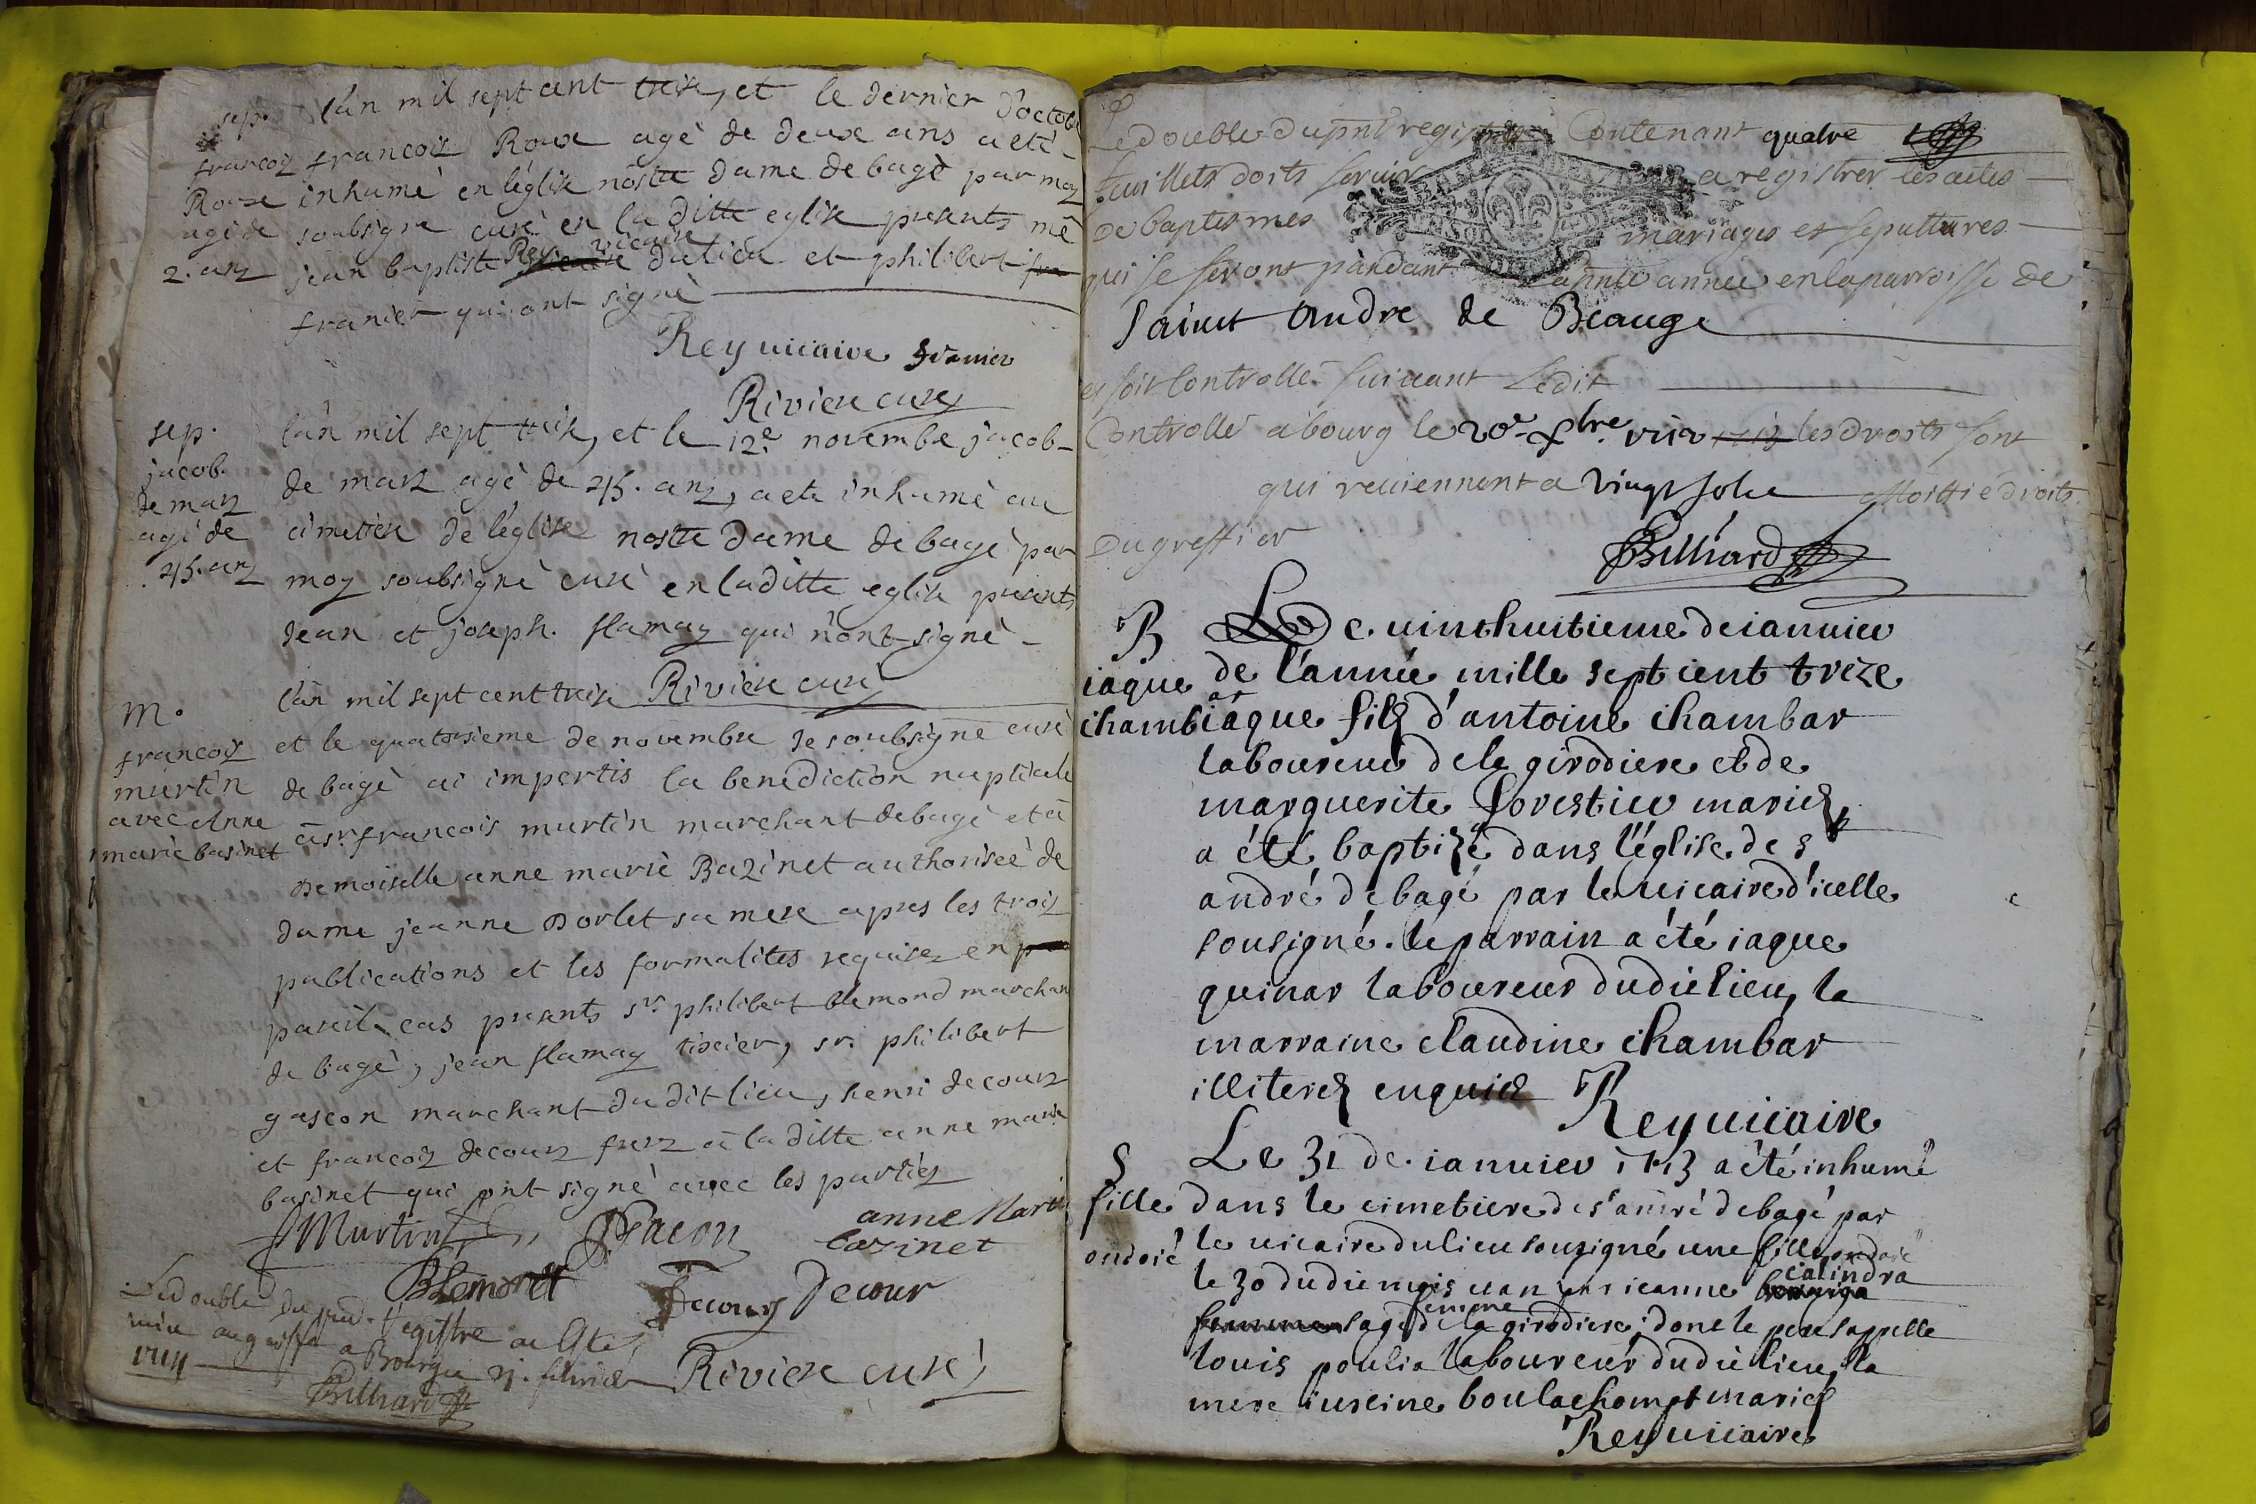 sep. l'an mil sept cent treize, et le dernier d'octob
francois francois Roux agè de deux ans a etè
Roux inhumè en l'èglise nostre dame de bagè par moy
agè de soubsignè curè en la ditte eglise presents me
2. ans jean baptiste Rey vicaire dulieu et philibert
franier qui ont signè
Rey vicaire franier
Riviere curé
sep. l'an mil sept treize, et le 12e novembre jacob
jacob de mars agè de 45. ans, a ete inhumè au
de mars cimetiere de l'èglise nostre dame de bagè par
agè de moy soubsignè curè en laditte eglise presents
45. ans Jean et joseph. flamay qui n'ont signè
Riviere curé
m. l'an mil sept cent treize
francois et le quatorsieme de novembre Je soubsignè curè
murtin de bagè ai impertis la benediction nuptiale
avec Anne à sr. francois murtin marchant de bagè et à
marie basinet Demoiselle anne marie Bazinet authorisèe de
dame jeanne Dorlet sa mere apres les trois
publications et les formalites requises en
pareil cas presents sr. philibert blemond marchan
de bagè, jean flamay tixier, sr. philibert
gascon marchant du dit lieu, henri decours
et francois decours freres à la ditte anne marie
basinet qui ont signè avec les parties
Murtin Gacon anne Marie
bazinet
BLemond Decours Decour
Le double du pnt. Registre a esté
mis au greffe a Bourg le
Riviere curé
Billiard
Le double du pnt registre Contenant quatre
feuillets doits servir a registrer les actes
De baptesmes mariages et sepultures
qui se feront pandant la pnte année en la parroisse de
Saint Andre de Beauge
et soit Controllé suivant Ledit
Controllé a bourg le 20e Xbre. les droits sont
qui reviennent a vingt sols Moittié droits
Du greffier
Billiard
B Le vinthuitieme de ianvier
iaque de l'année mille sept cent treze
chambar iaque fils d'antoine chambar
laboureur de la girodiere et de
marguerite forestier mariés
a été baptizé dans l'église de st
andré de bagé par le vicaire d'icelle
sousigné. le parrain a été iaque
quinar laboureur dudit lieu, la
marraine claudine chambar
illiterés enquis Rey vicaire
S Le 31 de ianvier 1713 a été inhumé
fille dans le cimetiere de st andré de bagé par
ondoié le vicaire du lieu sousigné une fille ondoié
le 30 dudit mois par ieanne calindra
femme sage de la girodiere; dont le pere s'appelle
louis poulia laboureur dudit lieu, la
mere boulachomet mariés
Rey vicaire